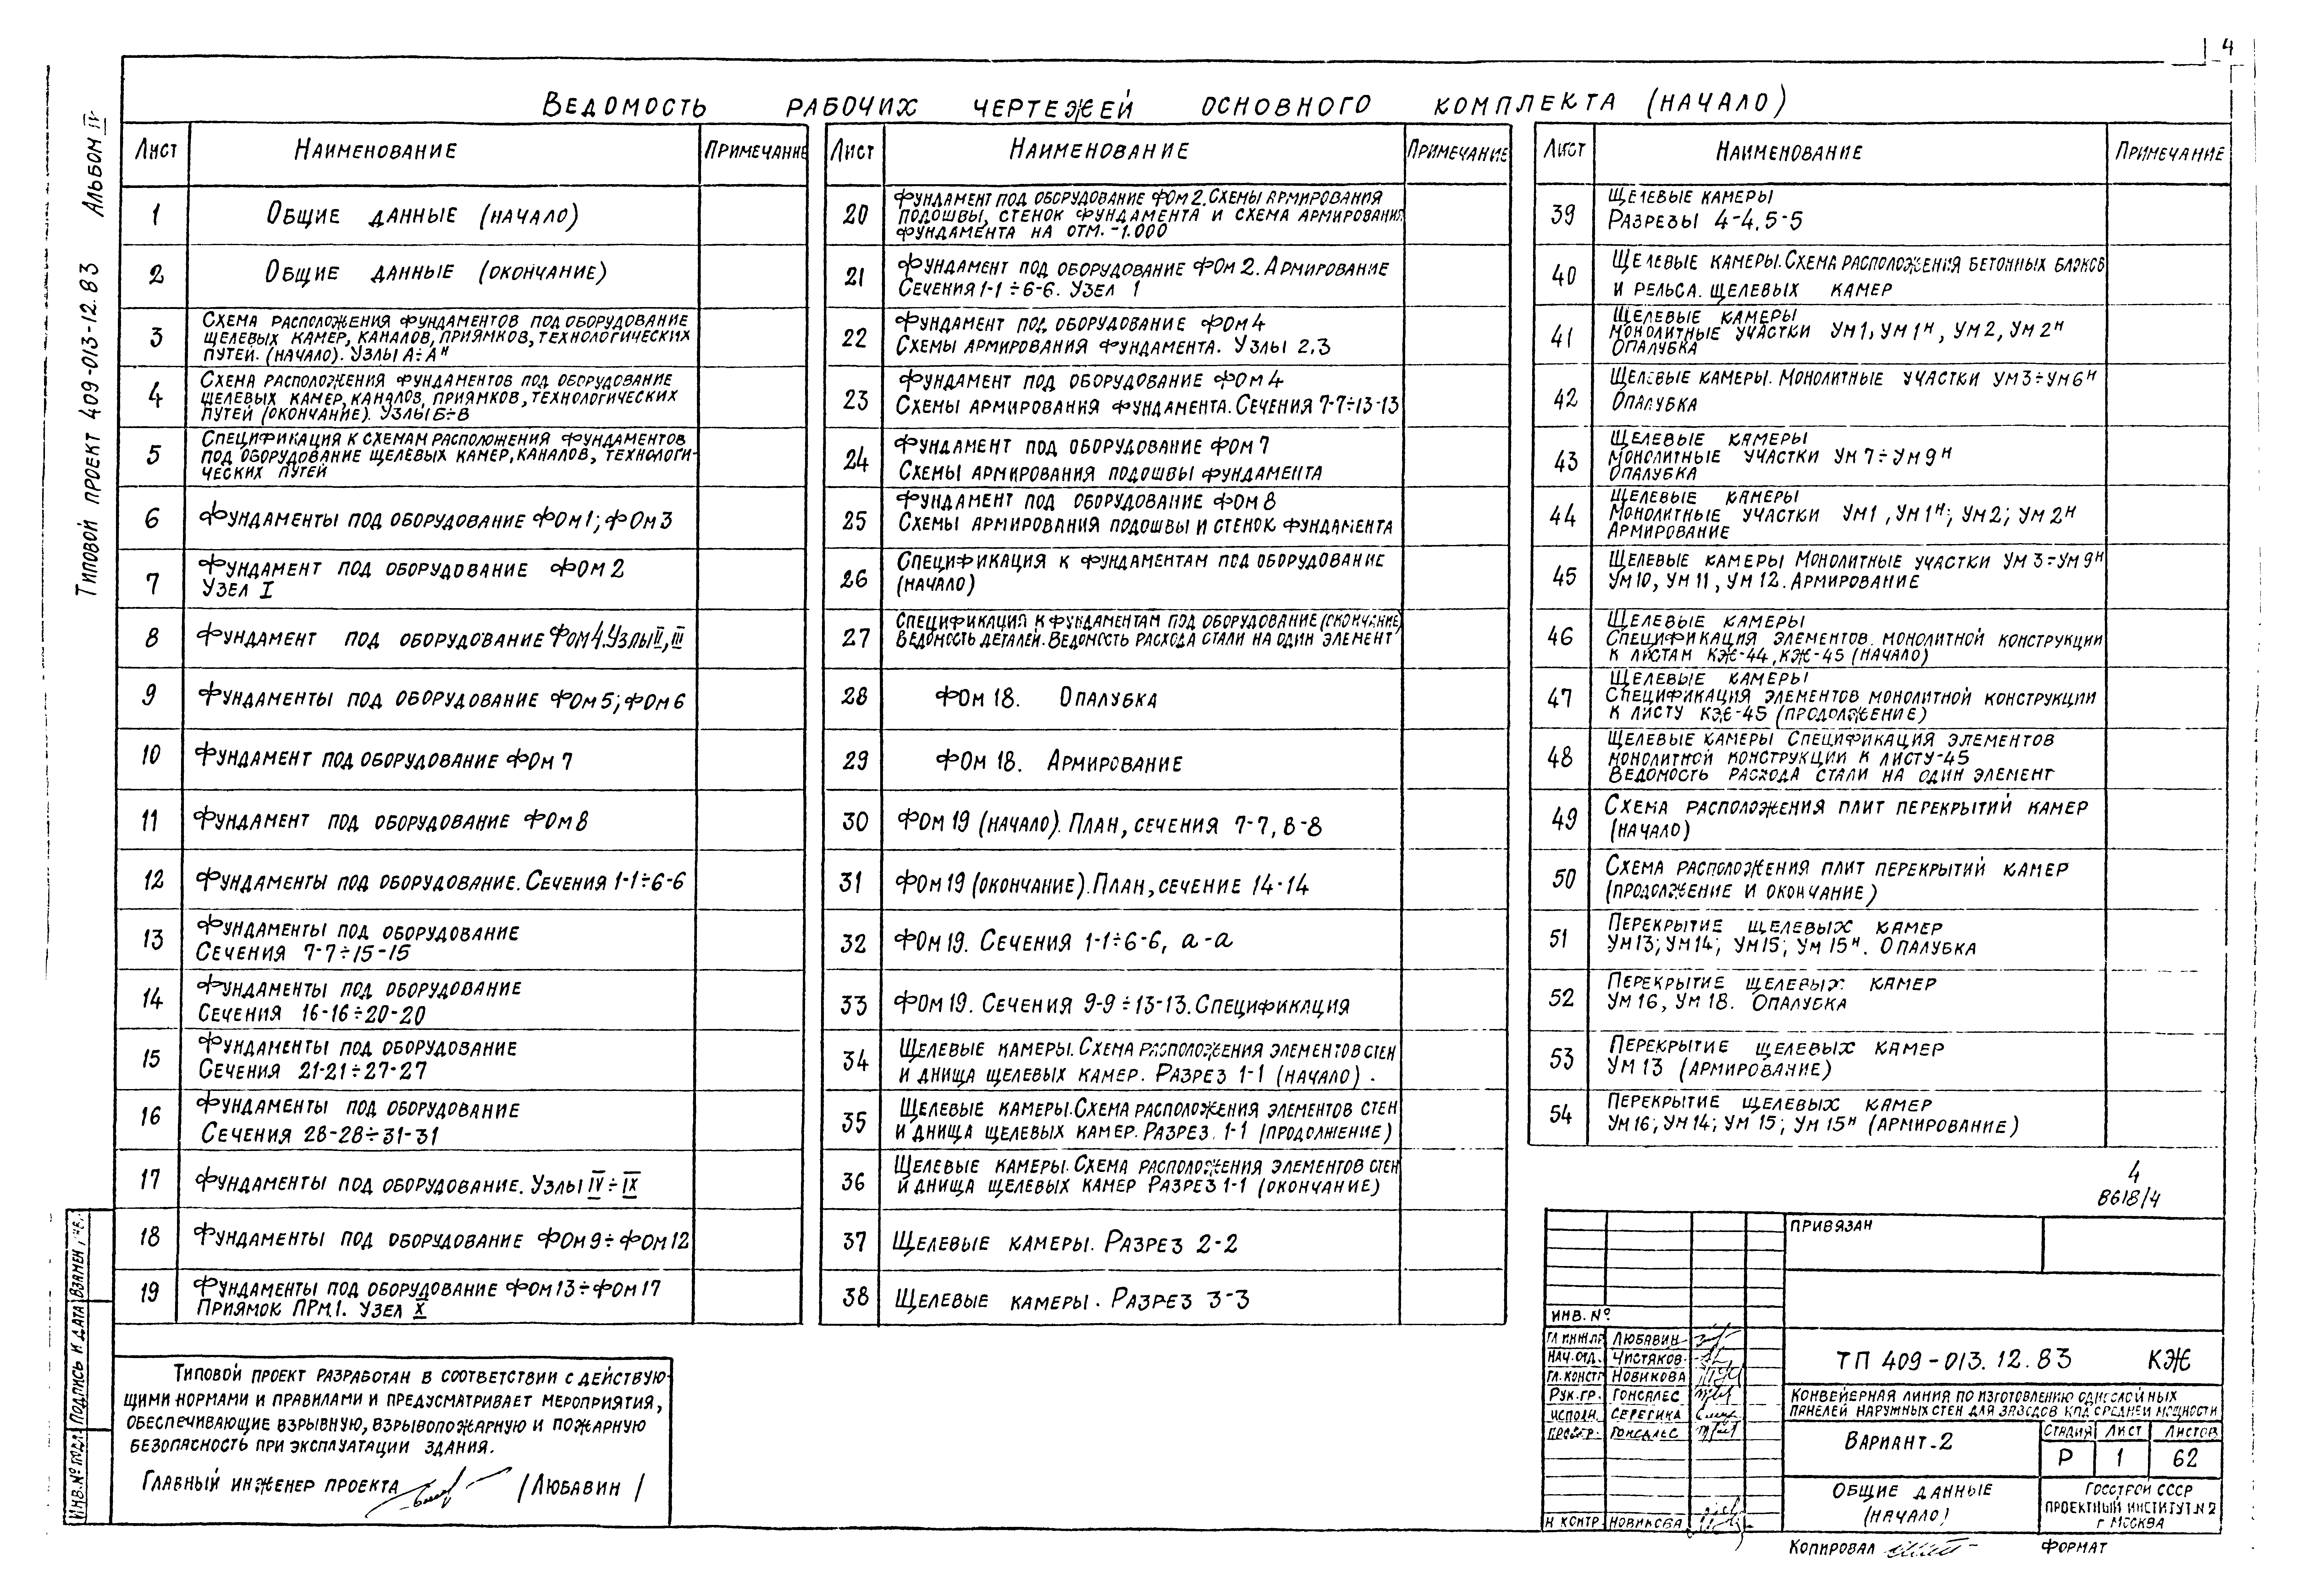 4
Ведомость рабочих чертежей основного комплекта (начало)
Типовой проект 409-013-12.83 Альбом IV
Лист Наименование Примечание
1 Общие данные (начало)
2 Общие данные (окончание)
3 Схема расположения фундаментов под оборудование
щелевых камер, каналов, приямков, технологических
путей. (начало). Узлы А÷Аᴴ
4 Схема расположения фундаментов под оборудование
щелевых камер, каналов, приямков, технологических
путей (окончание). Узлы Б÷В
5 Спецификация к схемам расположения фундаментов
под оборудование щелевых камер, каналов, технологи-
ческих путей
6 Фундаменты под оборудование ФОм1; ФОм3
7 Фундамент под оборудование ФОм2
Узел I
8 Фундамент под оборудование ФОм4. Узлы II, III
9 Фундаменты под оборудование ФОм5; ФОм6
10 Фундамент под оборудование ФОм7
11 Фундамент под оборудование ФОм8
12 Фундаменты под оборудование. Сечения 1-1÷6-6
13 Фундаменты под оборудование
Сечения 7-7÷15-15
14 Фундаменты под оборудование
Сечения 16-16÷20-20
15 Фундаменты под оборудование
Сечения 21-21÷27-27
16 Фундаменты под оборудование
Сечения 28-28÷31-31
17 Фундаменты под оборудование. Узлы IV÷IX
18 Фундаменты под оборудование ФОм9÷ФОм12
19 Фундаменты под оборудование ФОм13÷ФОм17
Приямок ПРм.1. Узел X
Лист Наименование Примечание
20 Фундамент под оборудование ФОм2. Схемы армирования
подошвы, стенок фундамента и схема армирования
фундамента на отм. -1.000
21 Фундамент под оборудование ФОм2. Армирование
Сечения 1-1÷6-6. Узел 1
22 Фундамент под оборудование ФОм4
Схемы армирования фундамента. Узлы 2,3
23 Фундамент под оборудование ФОм4
Схемы армирования фундамента. Сечения 7-7÷13-13
24 Фундамент под оборудование ФОм7
Схемы армирования подошвы фундамента
25 Фундамент под оборудование ФОм8
Схемы армирования подошвы и стенок фундамента
26 Спецификация к фундаментам под оборудование
(начало)
27 Спецификация к фундаментам под оборудование (окончание)
Ведомость деталей. Ведомость расхода стали на один элемент
28 ФОм18. Опалубка
29 ФОм18. Армирование
30 ФОм19 (начало). План, сечения 7-7, 8-8
31 ФОм19 (окончание). План, сечение 14-14
32 ФОм19. Сечения 1-1÷6-6, а-а
33 ФОм19. Сечения 9-9÷13-13. Спецификация
34 Щелевые камеры. Схема расположения элементов стен
и днища щелевых камер. Разрез 1-1 (начало).
35 Щелевые камеры. Схема расположения элементов стен
и днища щелевых камер. Разрез. 1-1 (продолжение)
36 Щелевые камеры. Схема расположения элементов стен
и днища щелевых камер Разрез 1-1 (окончание)
37 Щелевые камеры. Разрез 2-2
38 Щелевые камеры. Разрез 3-3
Лист Наименование Примечание
39 Щелевые камеры
Разрезы 4-4, 5-5
40 Щелевые камеры. Схема расположения бетонных блоков
и рельса. щелевых камер
41 Щелевые камеры
Монолитные участки Ум1, Ум1ᴴ, Ум2, Ум2ᴴ
Опалубка
42 Щелевые камеры. Монолитные участки Ум3÷Ум6ᴴ
Опалубка
43 Щелевые камеры
Монолитные участки Ум7÷Ум9ᴴ
Опалубка
44 Щелевые камеры
Монолитные участки Ум1, Ум1ᴴ; Ум2; Ум2ᴴ
Армирование
45 Щелевые камеры Монолитные участки Ум3÷Ум9ᴴ
Ум10, Ум11, Ум12. Армирование
46 Щелевые камеры
Спецификация элементов монолитной конструкции
к листам КЖ-44, КЖ-45 (начало)
47 Щелевые камеры
Спецификация элементов монолитной конструкции
к листу КЖ-45 (продолжение)
48 Щелевые камеры Спецификация элементов
монолитной конструкции к листу-45
Ведомость расхода стали на один элемент
49 Схема расположения плит перекрытий камер
(начало)
50 Схема расположения плит перекрытий камер
(продолжение и окончание)
51 Перекрытие щелевых камер
Ум13; Ум14; Ум15; Ум15ᴴ. Опалубка
52 Перекрытие щелевых камер
Ум16, Ум18. Опалубка
53 Перекрытие щелевых камер
Ум13 (армирование)
54 Перекрытие щелевых камер
Ум16; Ум14; Ум15; Ум15ᴴ (армирование)
4
8618/4
Типовой проект разработан в соответствии с действую-
щими нормами и правилами и предусматривает мероприятия,
обеспечивающие взрывную, взрывопожарную и пожарную
безопасность при эксплуатации здания.
Главный инженер проекта /Любавин/
Инв.№ подл. Подпись и дата Взамен инв.
Привязан
Инв. №
Гл инж.пр Любавин
Нач. отд. Чистяков
Гл. констр Новикова
Рук. гр. Гонсалес
Исполн. Серегина
Провер. Гонсалес
Н контр. Новикова
ТП 409-013.12.83 КЖ
Конвейерная линия по изготовлению однослойных
панелей наружных стен для заводов КПД средней мощности
Вариант-2
Стадия Лист Листов
Р 1 62
Общие данные
(начало)
Госстрой СССР
Проектный институт №2
г Москва
Копировал Формат